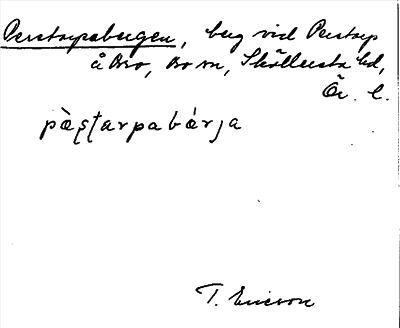 Perstorpabergen, berg vid Perstorp
å Bro, Bo sn, Sköllersta hd,
Ör. l.
pæ̀ʂʈarpabárja
T. Ericson